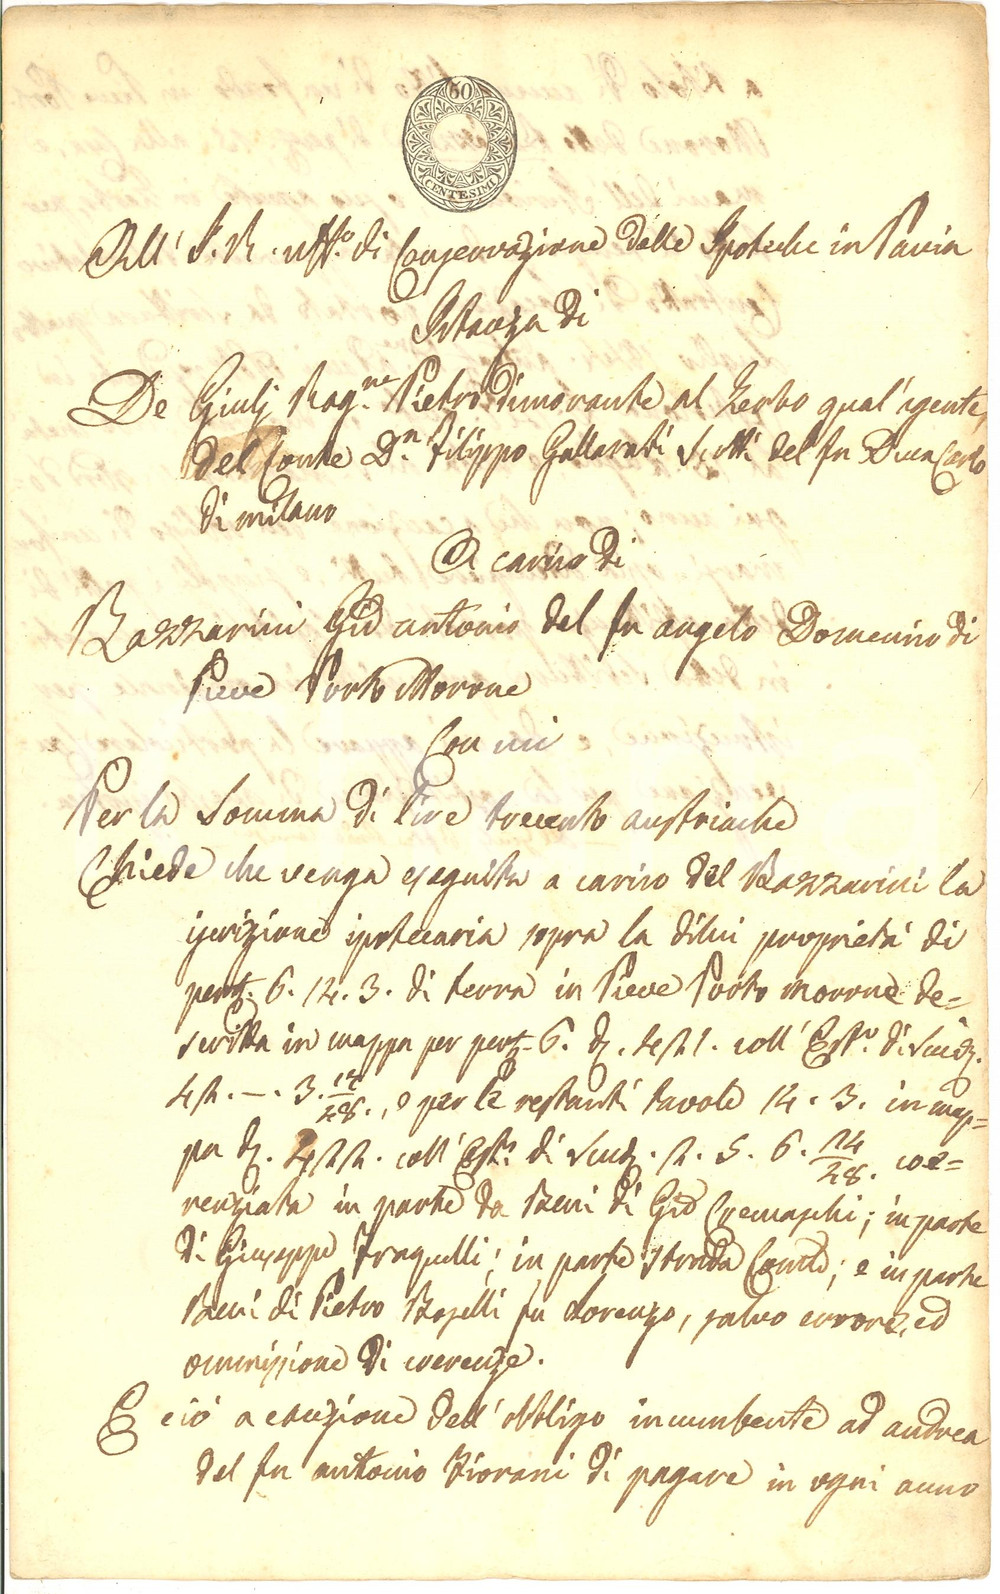 50
CENTESIMI
All' I. R. uff.o di Conservazione delle Ipoteche in Pavia
Istanza di
De Giulj Rag.ne Pietro dimorante al Zerbo qual'agente,
del Conte D.n Filippo Gallarati Scotti del fu Duca Carlo
di milano
A carico di
Bazzarini Gio antonio del fu angelo Domenico di
Pieve Porto Morone
Con cui
Per la Somma di Lire trecento austriache
Chiede che venga eseguita a carico del Bazzarini la
iscrizione ipotecaria sopra la dilui proprietá di
pert. 6. 14. 3. di terra in Pieve Porto Morone de=
scritta in mappa per pert. 6. 471. coll' Est.o di Scud.
3. e per le restanti tavole 14. 3. in map=
pa coll' Est.o di Scud. 5. 6. coe=
renziata in parte da Beni di Gio Cremaschi; in parte
di Giuseppe in parte Strada Com.le; e in parte
Beni di Pietro Boselli fu Lorenzo, salvo errore, ed
ommissione di coerenze.
E ció a cauzione dell' obbligo incumbente ad andrea
del fu antonio Fiorani di pagare in ogni anno